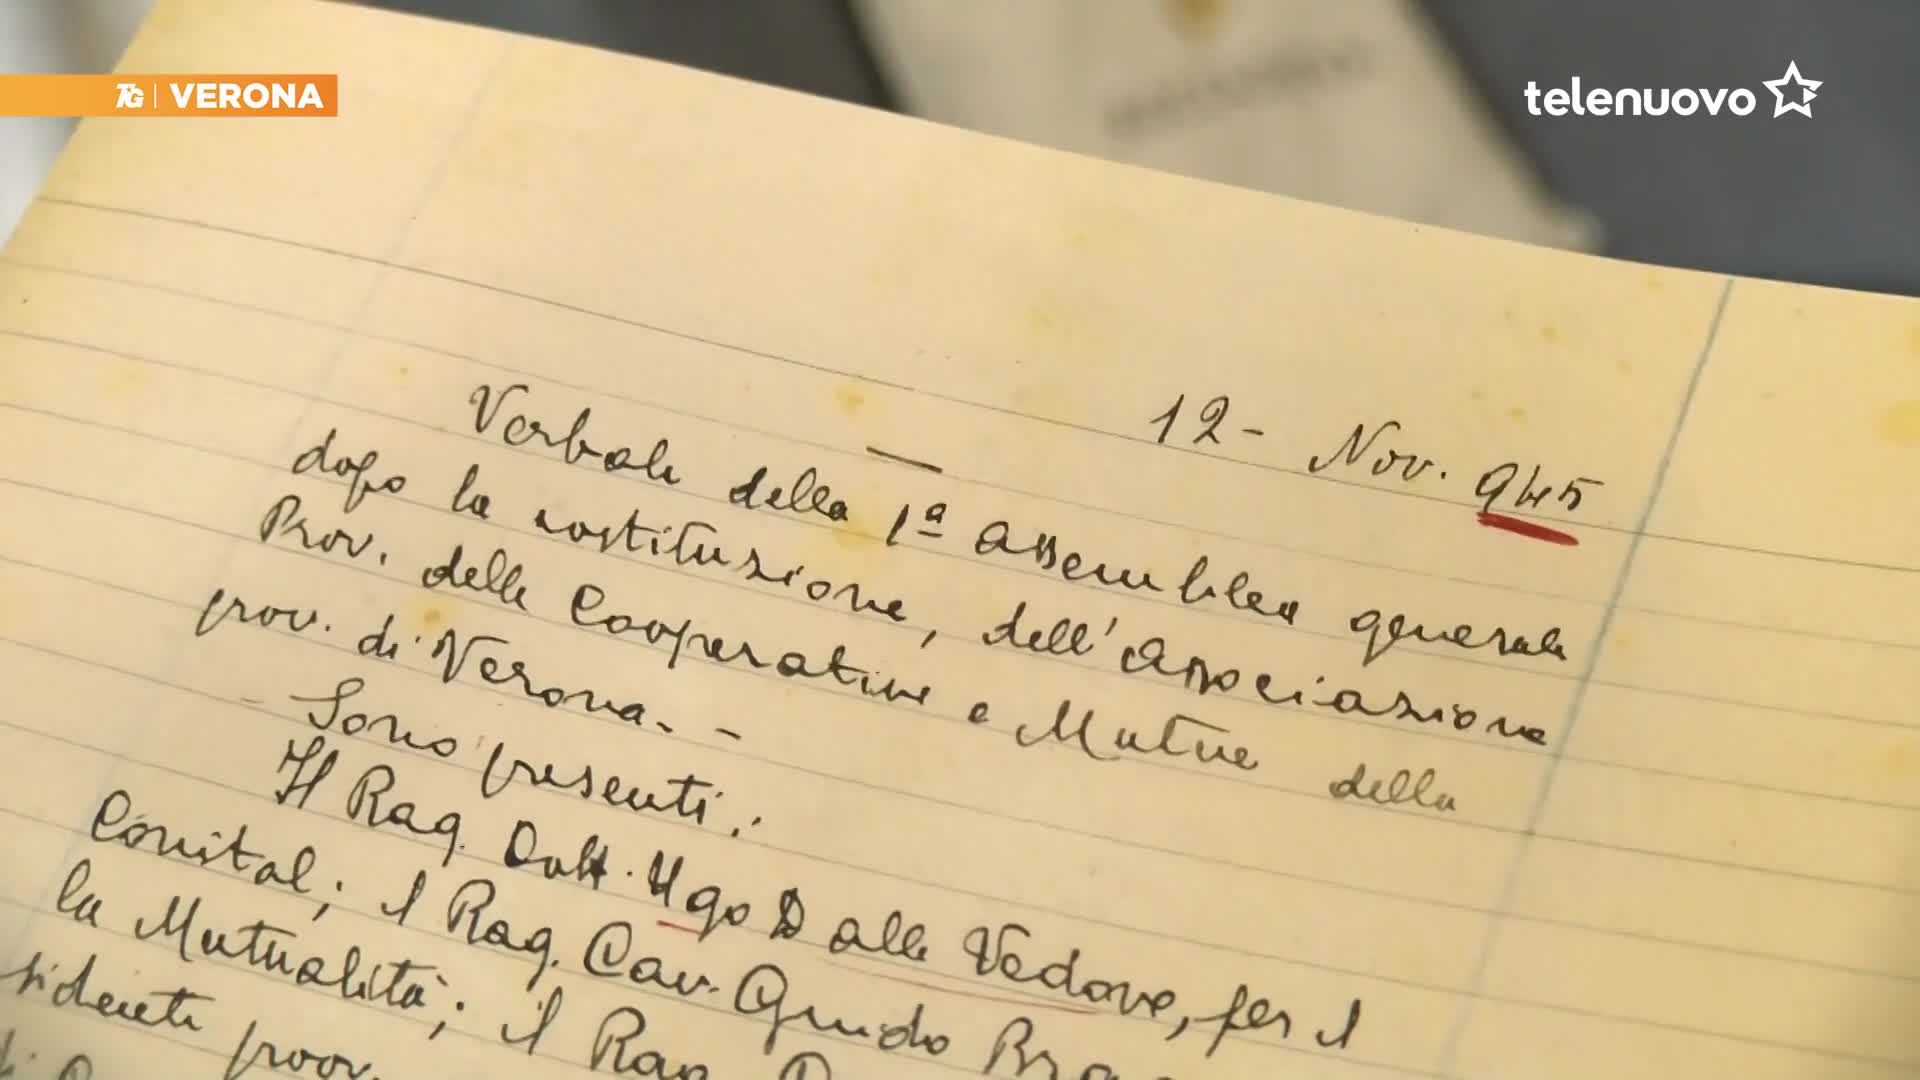 TG | VERONA
telenuovo
12 - Nov. 945
Verbale della 1ª assemblea generale
dopo la costituzione, dell'associazione
Prov. delle Cooperative e Mutue della
prov. di Verona. -
- Sono presenti:
Il Rag. Dott. Ugo Dalle Vedove, per il
Comital; il Rag. Cav. Guido
la Mutualità; il Rag.
prov.